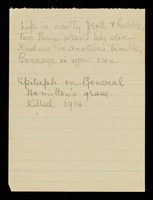 Life is mostly froth & bubble
Two things stand like stone
Kindness in another's trouble,
Courage in your own.
Epitaph on General
Hamilton's grave.
Killed 1914.